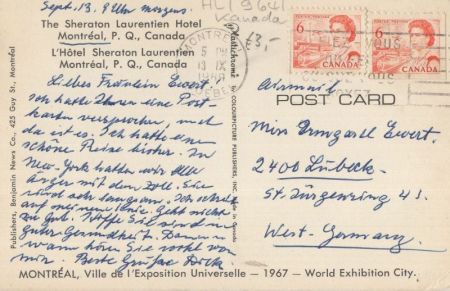 Sept. 13. 9 Uhr morgens.
HLT 9641
Kanada
The Sheraton Laurentien Hotel
Montréal, P. Q., Canada
L'Hôtel Sheraton Laurentien
Montréal, P. Q., Canada
£3,-
MONTRÉAL
5 PM
13 IX
QUÉBEC
6
CANADA
6
CANADA
Liebes Fräulein Ewert,
ich hatte Ihnen eine Post-
karten versprochen, und
da ist es. Ich hatte eine
schöne Reise bisher. In
New-York hatten wir
Ärger mit dem Zoll. Sie
sehr langsam. Ich
auf meinem Knie. Geht nicht
zu gut. Hoffe Sie sind in
guter Gesundheit.
wann hören Sie wohl von
mir. Beste Grüsse Dick
Airmail
POST CARD
Miss Irmgard Ewert.
2400 Lübeck.
St. Jürgenring 41.
West-Germany
Plastichrome by COLOURPICTURE PUBLISHERS, INC.
Publishers, Benjamin News Co., 425 Guy St., Montréal
MONTRÉAL, Ville de l'Exposition Universelle — 1967 — World Exhibition City.